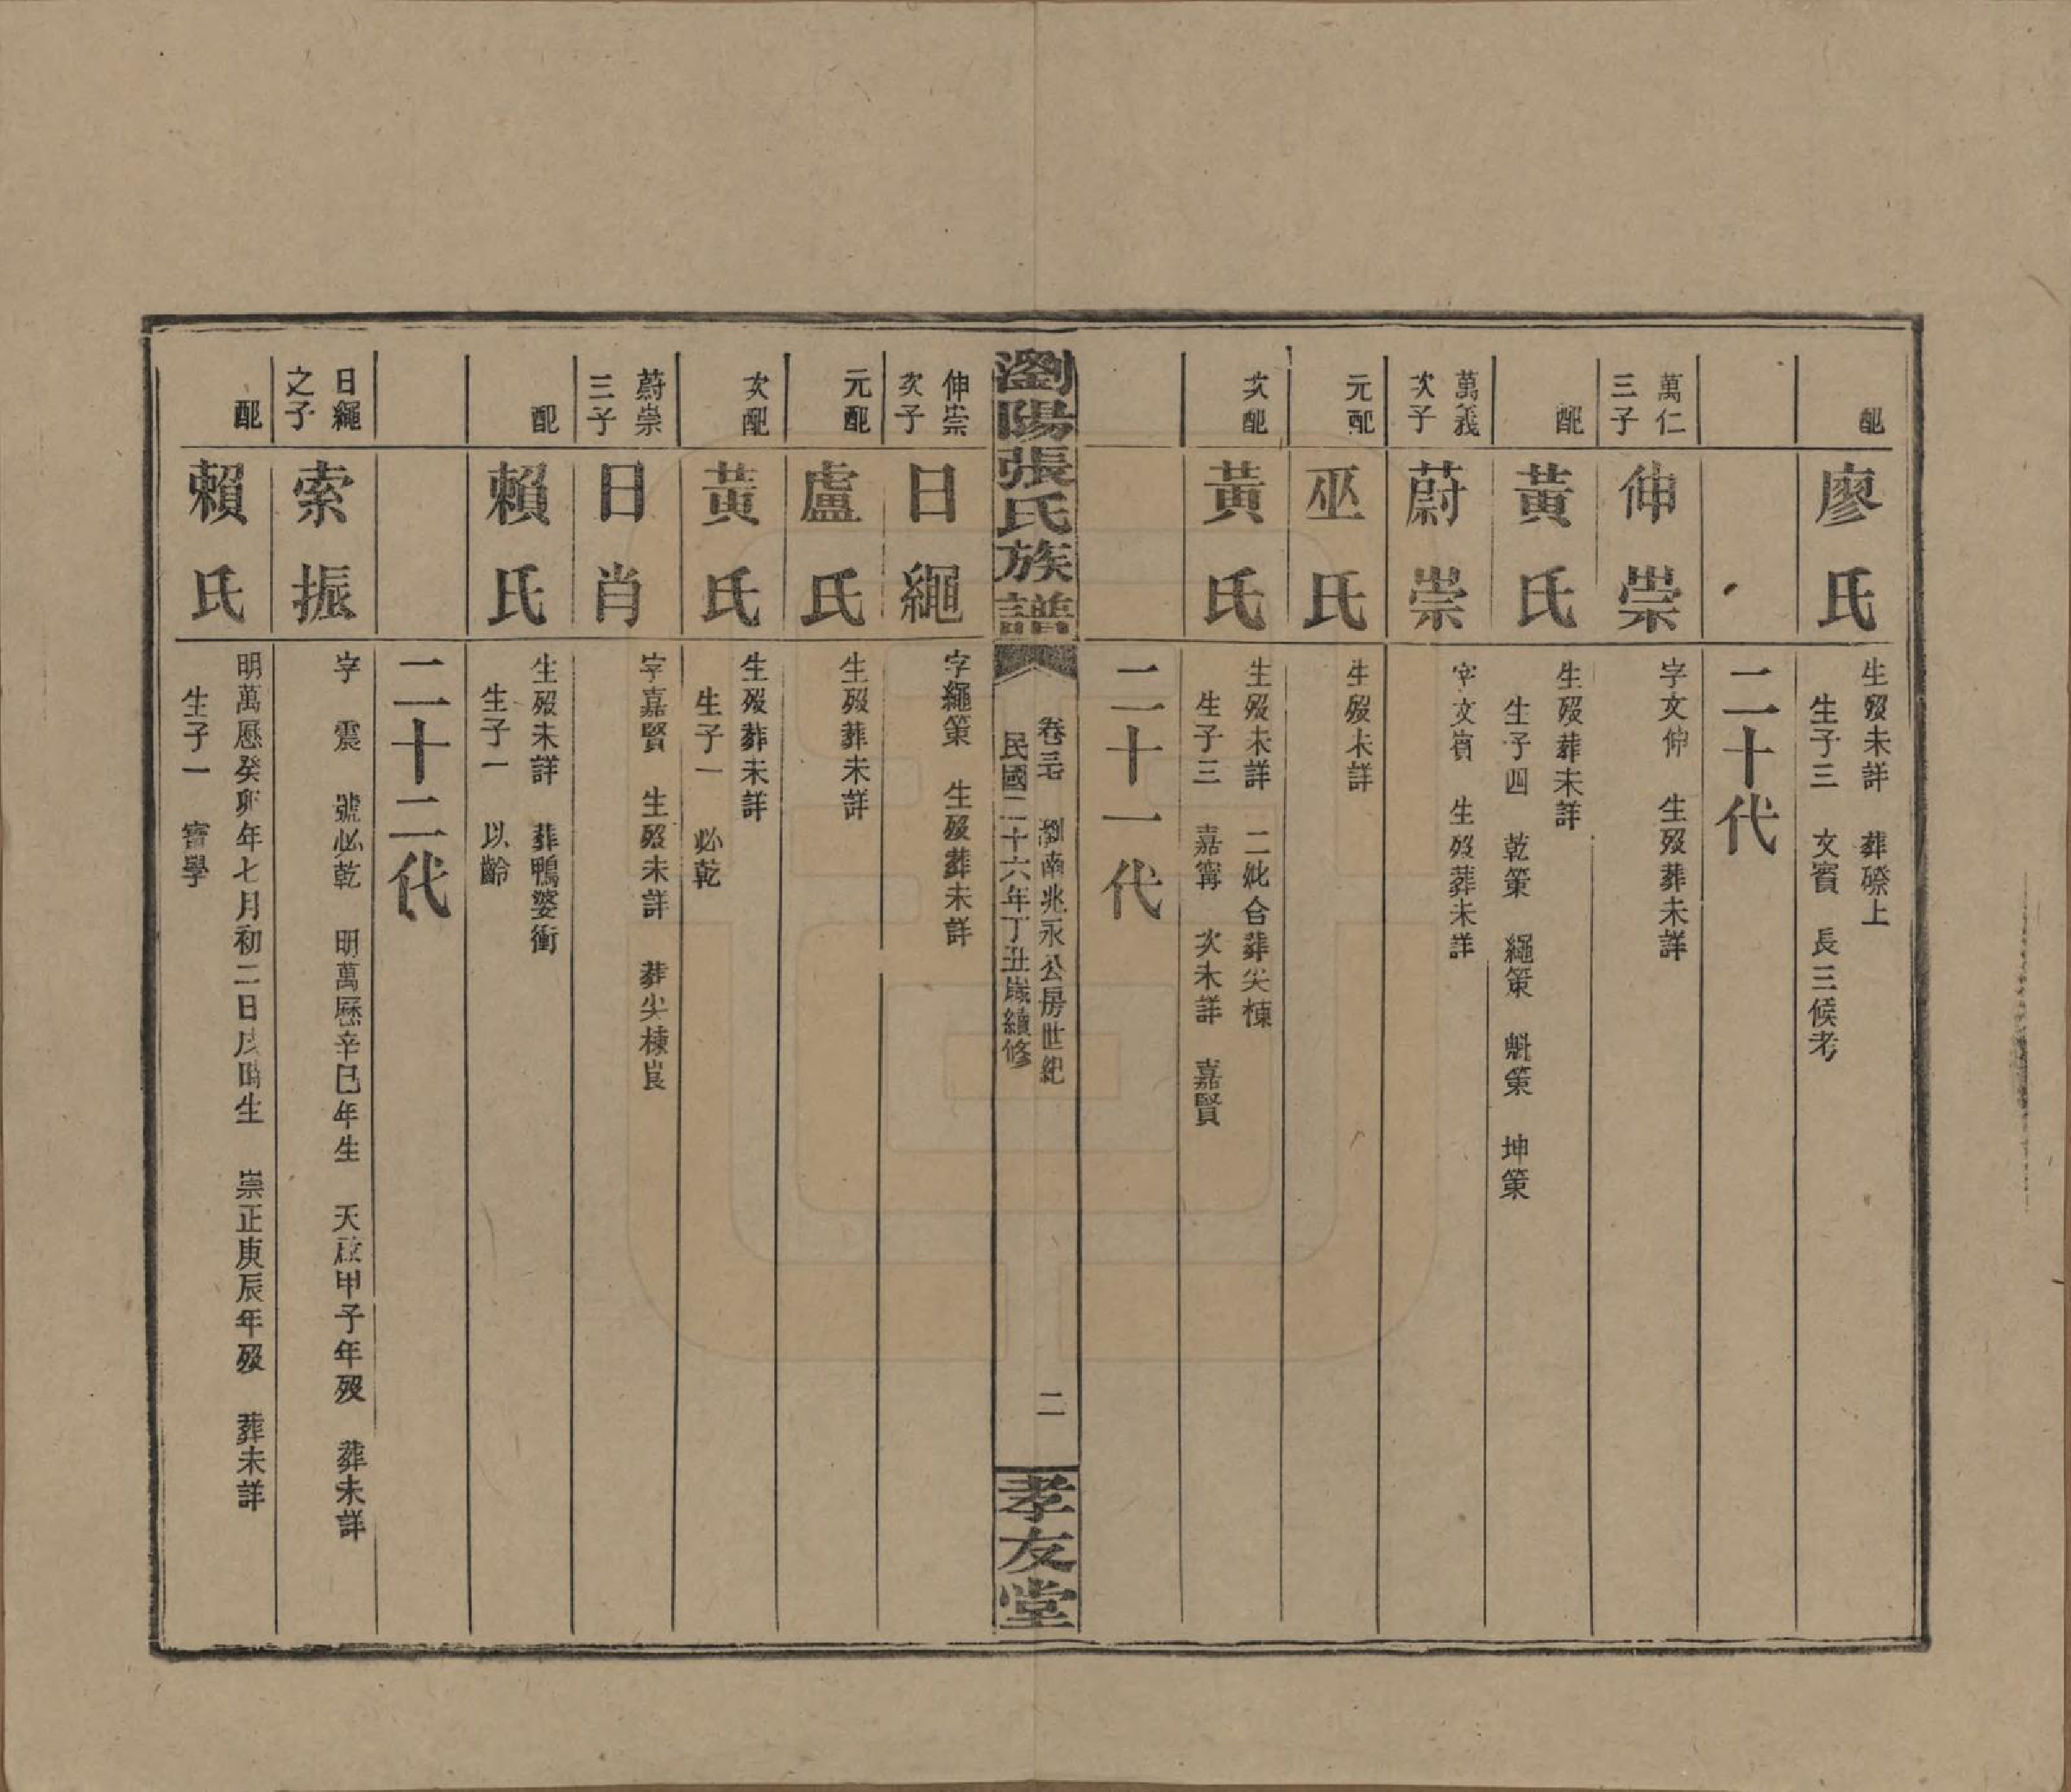 配
廖氏
生歿未詳 葬磜上
生子三 文賓 長三候考
二十代
萬仁
三子
伸崇
字文伸 生歿葬未詳
配
黃氏
生歿葬未詳
生子四 乾策 繩策 魁策 坤策
萬義
次子
蔚崇
字文賓 生歿葬未詳
元配
巫氏
生歿未詳
次配
黃氏
生歿未詳 二妣合葬尖棟
生子三 嘉寗 次未詳 嘉賢
二十一代
瀏陽張氏族譜
卷三 瀏南兆永公房世紀
民國二十六年丁丑歲續修
二
孝友堂
伸崇
次子
日繩
字繩策 生歿葬未詳
元配
盧氏
生歿葬未詳
次配
黃氏
生歿葬未詳
生子一 必乾
蔚崇
三子
日肖
字嘉賢 生歿未詳 葬尖棟崀
配
賴氏
生歿未詳 葬鴨婆衝
生子一 以齡
二十二代
日繩
之子
索振
字震 號必乾 明萬曆辛巳年生 天啟甲子年歿 葬未詳
配
賴氏
明萬曆癸卯年七月初二日戌時生 崇正庚辰年歿 葬未詳
生子一 寶學